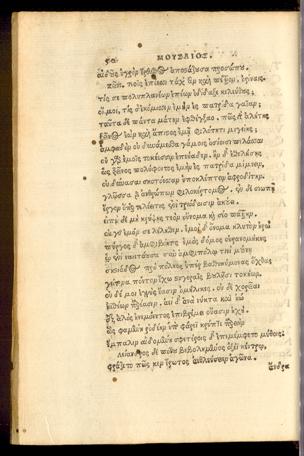 ΜΟΥΣΑΙΟΣ.
αἰδοῦς ὑγρὸν ἔρευθος ἀποστάζουσα προσώπου.
ξεῖνε τεοῖς ἐπέεσσι τάχ' ἂν καὶ πέτρον ὀρίναις.
τίς σε πολυπλανέων ἐπέων ἐδίδαξε κελεύθους;
οἴμοι, τίς σ' ἐκόμισσεν ἐμὴν ἐς πατρίδα γαῖαν;
ταῦτα δὲ πάντα μάτην ἐφθέγξαο. πῶς γὰρ ἀλήτης
ξεῖνος ἐὼν καὶ ἄπιστος ἐμῇ φιλότητι μιγείης;
ἀμφαδὸν οὐ δυνάμεσθα γάμοις ὁσίοισι πελάσσαι
οὐ γὰρ ἐμοῖς τοκέεσσιν ἐπεύαδεν. ἢν δ' ἐθελήσῃς
ὡς ξεῖνος πολύφοιτος ἐμὴν ἐς πατρίδα μίμνειν,
οὐ δύνασαι σκοτόεσσαν ὑποκλέπτειν ἀφροδίτην.
γλῶσσα γὰρ ἀνθρώπων φιλοκέρτομος. ἐν δὲ σιωπῇ
ἔργον ὅπερ τελέει τις, ἐνὶ τριόδοισιν ἀκούει.
εἰπὲ δὲ μὴ κρύψῃς τεὸν οὔνομα καὶ σέο πάτρην.
οὐ γὰρ ἐμόν σε λέληθεν. ἐμοὶ δ' ὄνομα κλυτὸν ἡρώ
πύργος δ' ἀμφιβόητος ἐμὸς δόμος οὐρανομήκης
ᾧ ἔνι ναιετάουσα σὺν ἀμφιπόλῳ τινὶ μούνῃ
σηστιάδος πρὸ πόληος ὑπὲρ βαθυκύμονας ὄχθας
γείτονα πόντον ἔχω στυγεραῖς βουλῇσι τοκήων.
οὐδέ μοι ἐγγὺς ἔασιν ὁμήλικες. οὐδὲ χορεῖαι
ἠϊθέων παρέασιν. ἀεὶ δ' ἀνὰ νύκτα καὶ ἠῶ
ἐξ ἁλὸς ἠνεμόεντος ἐπιβρέμει οὔασιν ἠχή.
ὣς φαμένη ῥοδέην ὑπὸ φάρεϊ κρύπτε παρειὴν
ἔμπαλιν αἰδομένη. σφετέροις δ' ἐπεμέμφετο μύθοις.
λείανδρος δὲ πόθου βεβολημένος ὀξέϊ κέντρῳ,
φράζετο πῶς κεν ἔρωτος ἀεθλεύσειεν ἀγῶνα.
ἄνδρα